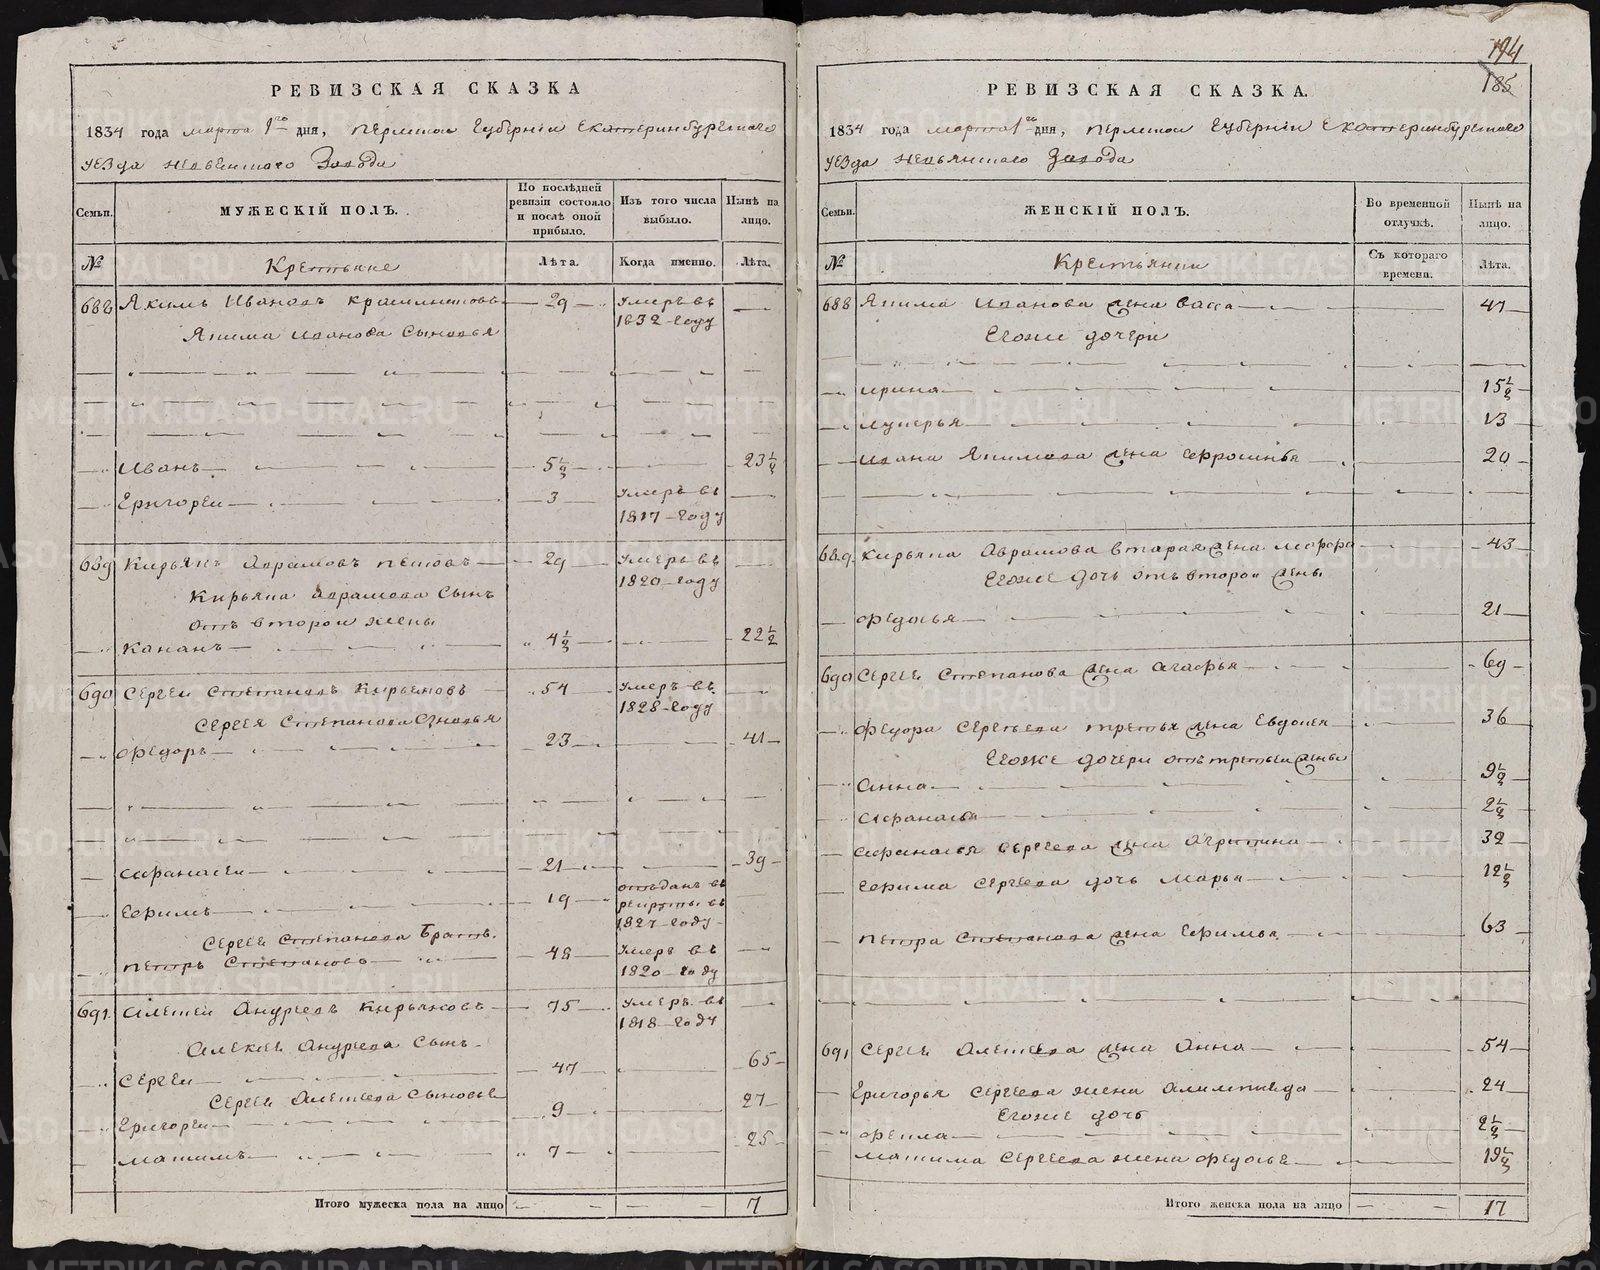 РЕВИЗСКАЯ СКАЗКА
1834 года марта 1го дня, Пермской Губернiи Екатеринбургскаго
уезда Невьянскаго Завода
Семьи. МУЖЕСКIЙ ПОЛЪ. По послѣдней ревизiи состояло и послѣ оной прибыло. Изъ того числа выбыло. Нынѣ на лицо.
№ Крестьяне Лѣта. Когда именно. Лѣта.
688 Якимъ Ивановъ 29 умеръ въ
1832 году
Якима Иванова сыновья
Иванъ 5½ 23½
Григореи 3 умеръ въ
1817 году
689 Кирьянъ Аврамовъ 29 умеръ въ
1820 году
Кирьяна Аврамова сынъ
отъ второи жены
Кананъ 4½ 22½
690 Сергеи Степановъ Кирьяновъ 54 умеръ въ
1828 году
Сергея Степанова сыновья
Федоръ 23 41
Афанасеи 21 39
Ефимъ 19 отъданъ въ
рекруты въ
1827 году
Сергея Степанова братъ
Петръ Степановъ 48 умеръ въ
1820 году
691 Алексеи Андреевъ Кирьяновъ 75 умеръ въ
1818 году
Алексея Андреева сынъ
Сергеи 47 65
Сергея Алексеева сыновья
Григореи 9 27
Максимъ 7 25
Итого мужеска пола на лицо 7
194
185
РЕВИЗСКАЯ СКАЗКА.
1834 года марта 1го дня, Пермской Губернiи Екатеринбургскаго
уезда Невьянскаго Завода
Семьи. ЖЕНСКIЙ ПОЛЪ. Во временной отлучкѣ. Нынѣ на лицо.
№ Крестьянки Съ котораго времени. Лѣта.
688 Якима Иванова жена Васса 47
Егоже дочери
Ирина 15½
Лукерья 13
Ивана Якимова жена Ефросинья 20
689 Кирьяна Аврамова вторая жена Марфа 43
Егоже дочь отъ второи жены
Федосья 21
690 Сергея Степанова жена Агафья 69
Федора Сергеева третья жена Евдокея 36
Егоже дочери отъ третьеи жены
Анна 9½
Афанасья 2½
Афанасья Сергеева жена Агрипина 32
Ефима Сергеева дочь Марья 12½
Петра Степанова жена Ефимья 63
691 Сергея Алексеева жена Анна 54
Григорья Сергеева жена Алимпиада 24
Егоже дочь
Фекла 2½
Максима Сергеева жена Федосья 19½
Итого женска пола на лицо 17
METRIKI.GASO-URAL.RU